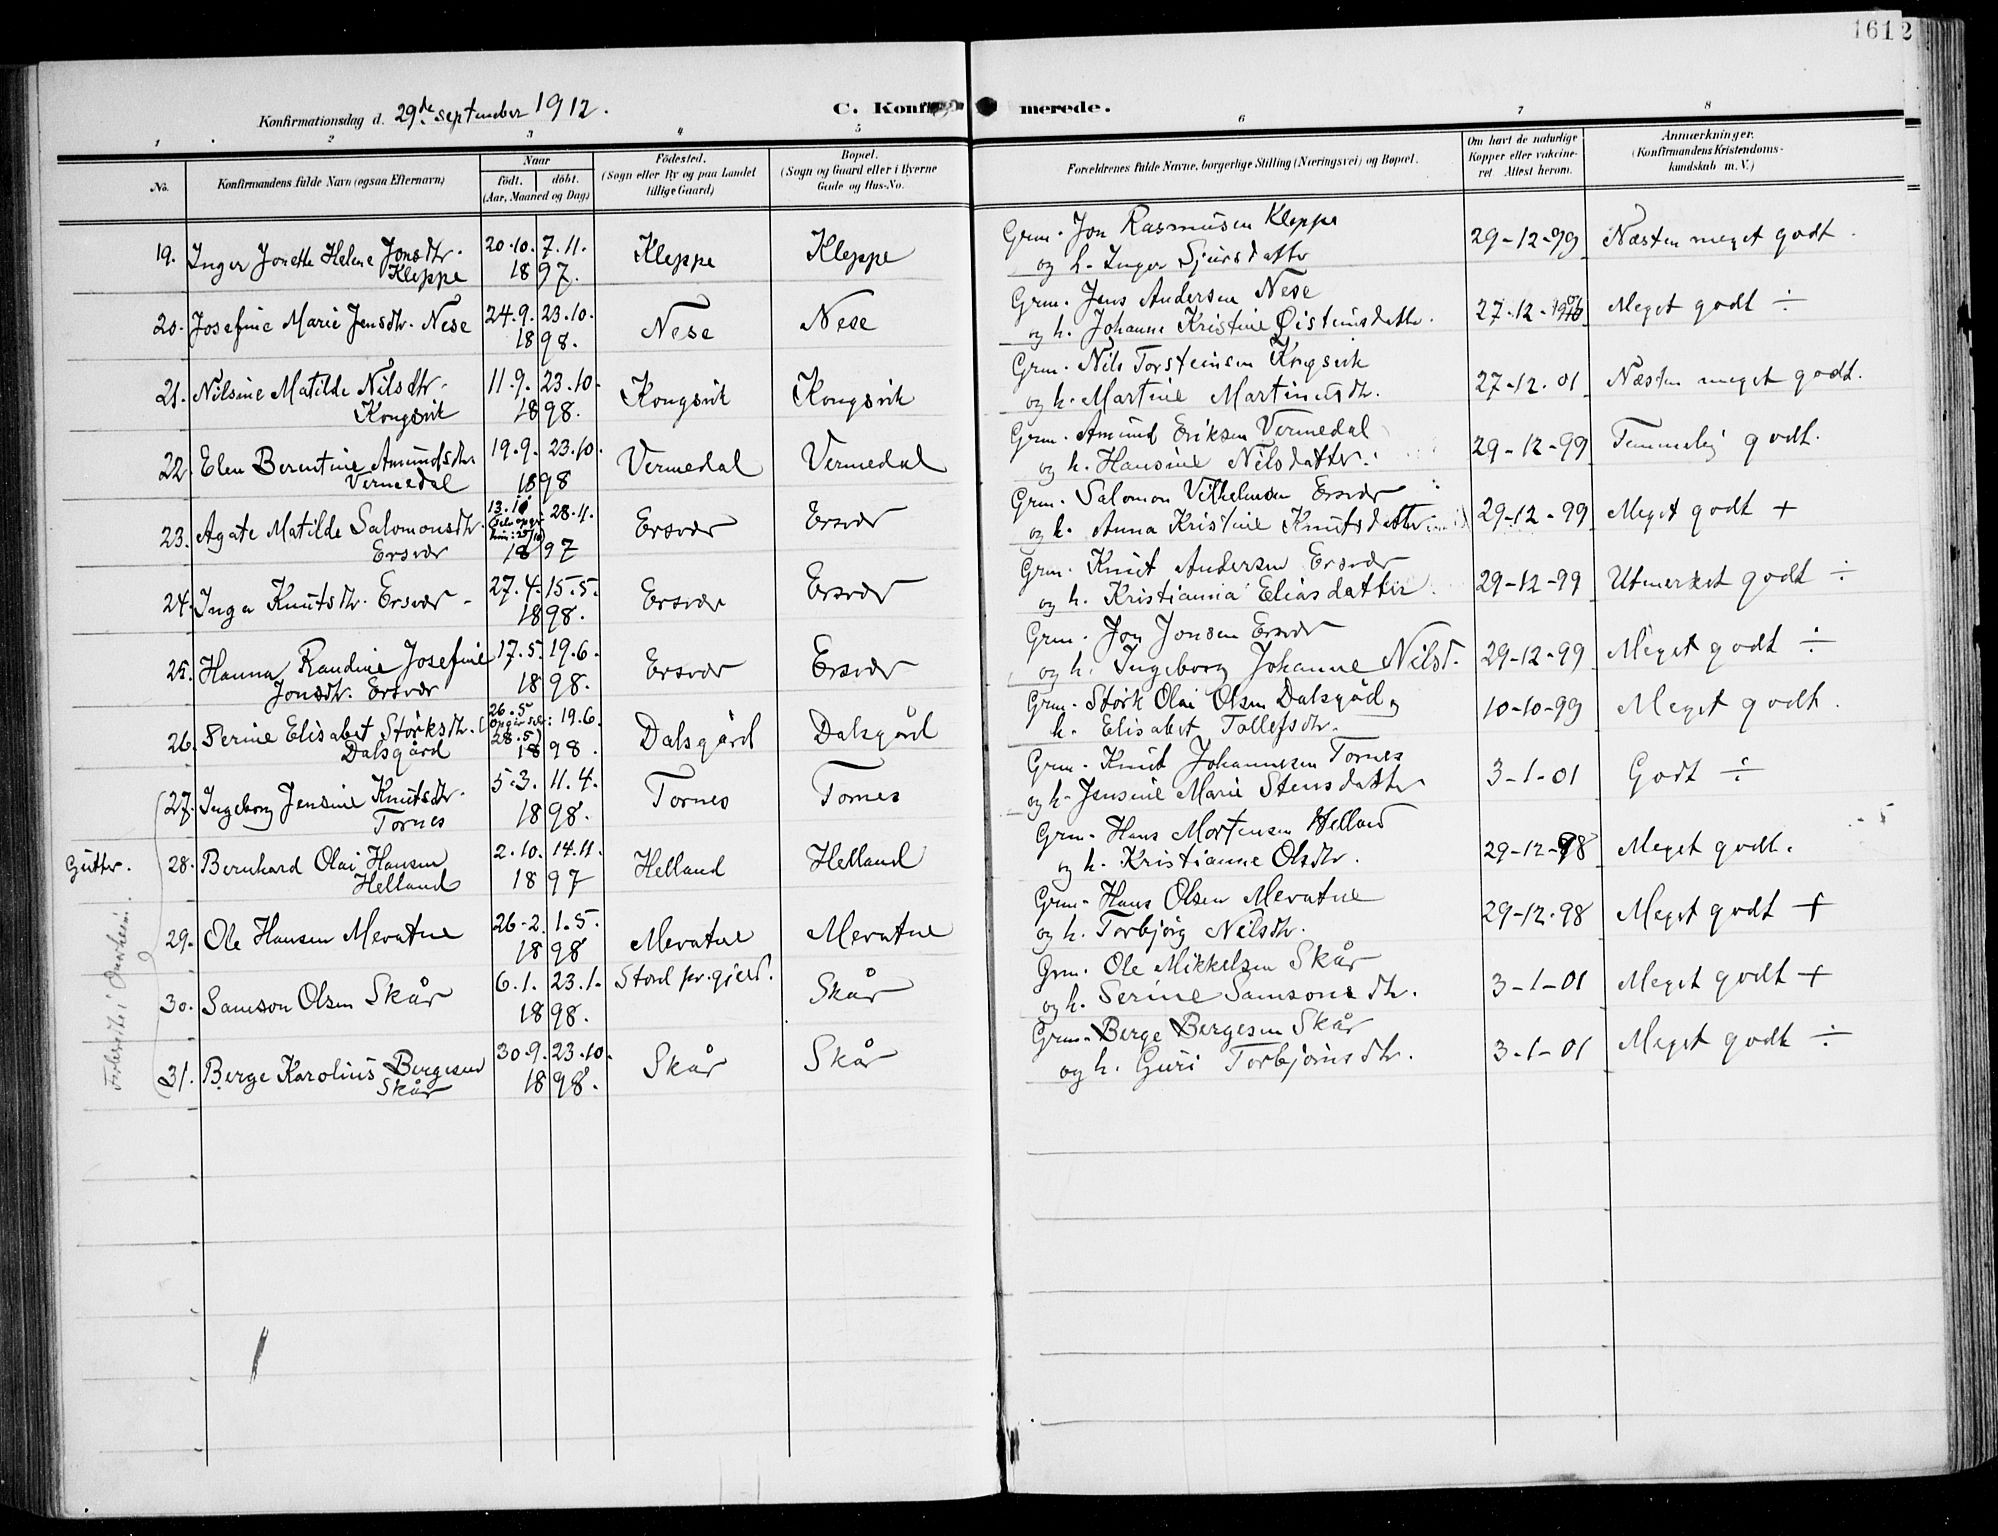 1612
Konfirmationsdag d. 29de september 1912.
C. Konfirmerede.
1 2 3 4 5 6 7 8
No.
Konfirmandens fulde Navn (ogsaa Efternavn)
Naar
født. døbt.
(Aar, Maaned og Dag)
Fødested.
(Sogn eller By og paa Landet
tillige Gaard)
Bopæl.
(Sogn og Gaard eller i Byerne
Gade og Hus-No.
Forældrenes fulde Navne, borgerlige Stilling (Næringsvei) og Bopæl.
Om havt de naturlige
Kopper eller vakcine-
ret. Attest herom.
Anmærkninger.
(Konfirmandens Kristendoms-
kundskab m. V.)
19. Inger Jonette Helene Jonsdtr. 20.10. 7.11. Kleppe Kleppe Grm. Jon Rasmusen Kleppe 29-12-99 Næsten meget godt.
Kleppe 1897. og h. Inger Sjursdatter
20. Josefine Marie Jensdtr. Nese 24.9. 23.10. Nese Nese Grm. Jens Andersen Nese 27-12- Meget godt ÷
1898. og h. Johanne Kristine Øisteinsdatter.
21. Nilsine Matilde Nilsdtr. 11.9. 23.10. Kongsvik Kongsvik Grm. Nils Torsteinsen Kongsvik 27-12.01 Næsten meget godt.
Kongsvik 1898. og h. Martine Martinusdtr.
22. Elen Berntine Amundsdtr. 19.9. 23.10. Vermedal Vermedal Grm. Amund Eriksen Vermedal 29-12-99 Temmelig godt.
Vermedal 1898 og h. Hansine Nilsdatter.
23. Agate Matilde Salomonsdtr. 28.11. Ersvær Ersvær Grm. Salomon Vilhelmsen Ersvær 29-12-99 Meget godt +
Ersvær 1897 og h. Anna Kristine Knutsdatter
24. Inga Knutsdtr. Ersvær 27.4. 15.5. Ersvær Ersvær Grm. Knut Andersen Ersvær 29-12-99 Utmerket godt ÷
1898. og h. Kristianna Eliasdatter
25. Hanna Randine Josefine 17.5. 19.6. Ersvær Ersvær Grm. Jon Jonsen Ersvær 29-12-99 Meget godt ÷
Jonsdtr. Ersvær 1898. og h. Ingeborg Johanne Nilsd.
26. Serine Elisabet Størksdtr. 26.5 (Opgir selv: 28.5) 19.6. Dalsgård Dalsgård Grm. Størk Olai Olsen Dalsgård og 10-10-99 Meget godt.
Dalsgård 1898. h. Elisabet Tollefsdtr.
27. Ingeborg Jensine Knutsdtr. 5.3. 11.4. Tornes Tornes Grm. Knut Johannesen Tornes 3-1-01 Godt ÷
Tornes 1898. og h. Jensine Marie Stensdatter
Gutter. 28. Bernhard Olai Hansen 2.10. 14.11. Helland Helland Grm. Hans Mortensen Helland 29-12-98 Meget godt.
Helland 1897 og h. Kristianne Olsdtr.
29. Ole Hansen Mevatne 26-2. 1.5. Mevatne Mevatne Grm. Hans Olsen Mevatne 29-12-98 Meget godt +
1898 og h. Torbjørg Nilsdtr.
30. Samson Olsen Skår 6.1. 23.1. Stord Skår Grm. Ole Mikkelsen Skår 3-1-01 Meget godt +
1898. og h. Serine Samsonsdtr.
31. Berge Karolius Bergesen 30.9. 23.10. Skår Skår Grm. Berge Bergesen Skår 3-1-01 Meget godt ÷
Skår 1898. og h. Guri Torbjørnsdtr.